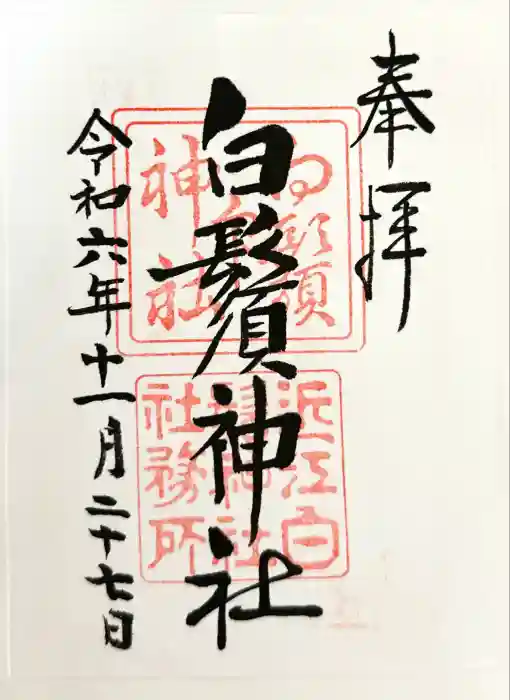 奉拝
白鬚神社
令和六年十一月二十七日
白鬚神社
近江白鬚神社社務所